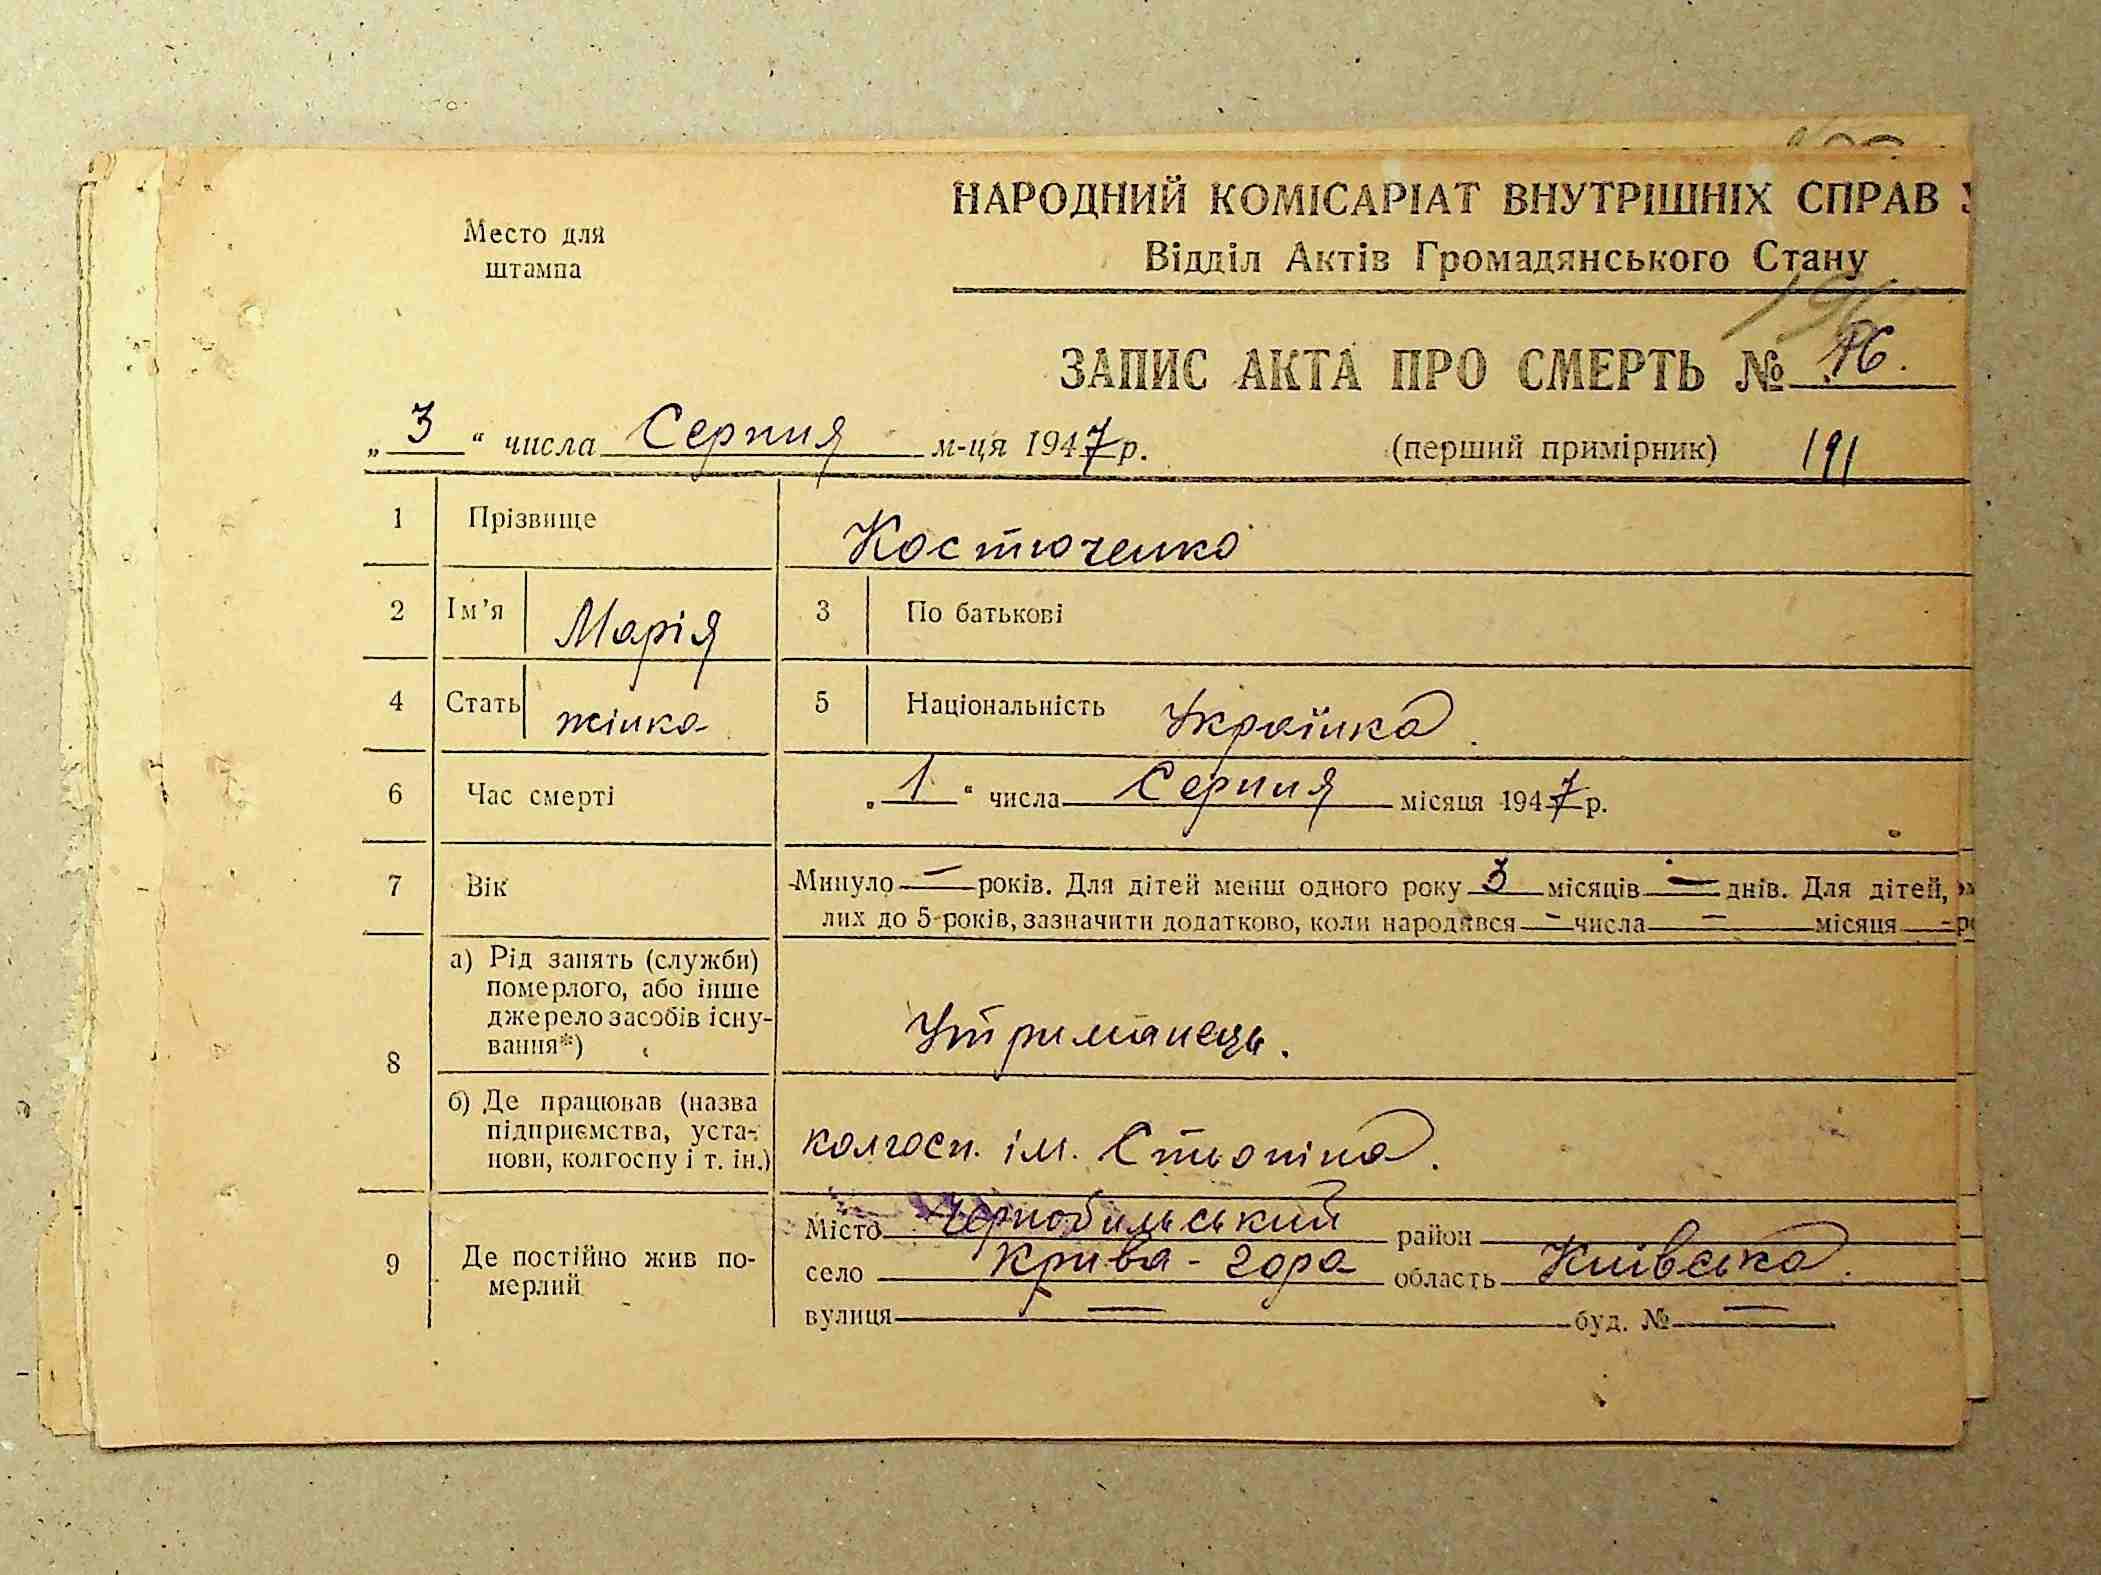 Место для
штампа
НАРОДНИЙ КОМІСАРІАТ ВНУТРІШНІХ СПРАВ
Відділ Актів Громадянського Стану
ЗАПИС АКТА ПРО СМЕРТЬ № 76.
„ 3 “ числа Серпня м-ця 1947 р. (перший примірник) 191
1 Прізвище Костюченко
2 Ім'я Марія 3 По батькові
4 Стать жінка 5 Національність Українка.
6 Час смерті „ 1 “ числа Серпня місяця 1947 р.
7 Вік Минуло — років. Для дітей менш одного року 3 місяців — днів. Для дітей,
лих до 5 років, зазначити додатково, коли народився — числа — місяця —
8 а) Рід занять (служби)
померлого, або інше
джерело засобів існу-
вання*) Утриманець.
б) Де працював (назва
підприємства, уста-
нови, колгоспу і т. ін.) колгосп. ім.
9 Де постійно жив по-
мерлий
Місто Чернобильський район
село Крива-гора область Київська.
вулиця — буд. № —